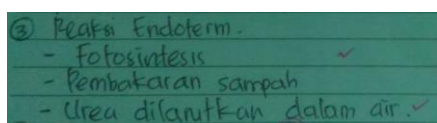 ③ Reaksi Endoterm.
- Fotosintesis
- Pembakaran sampah
- Urea dilarutkan dalam air.